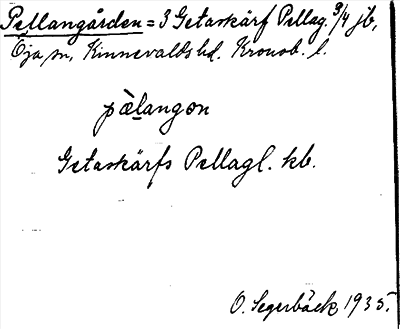 Pellangården = 3 Getaskärf Pellag. 3/4 jb,
Öja sn, Kinnevalds hd. Kronob. l.
pä̀langon
Getaskärfs Pellagl. kb.
O. Segerbäck 1935.